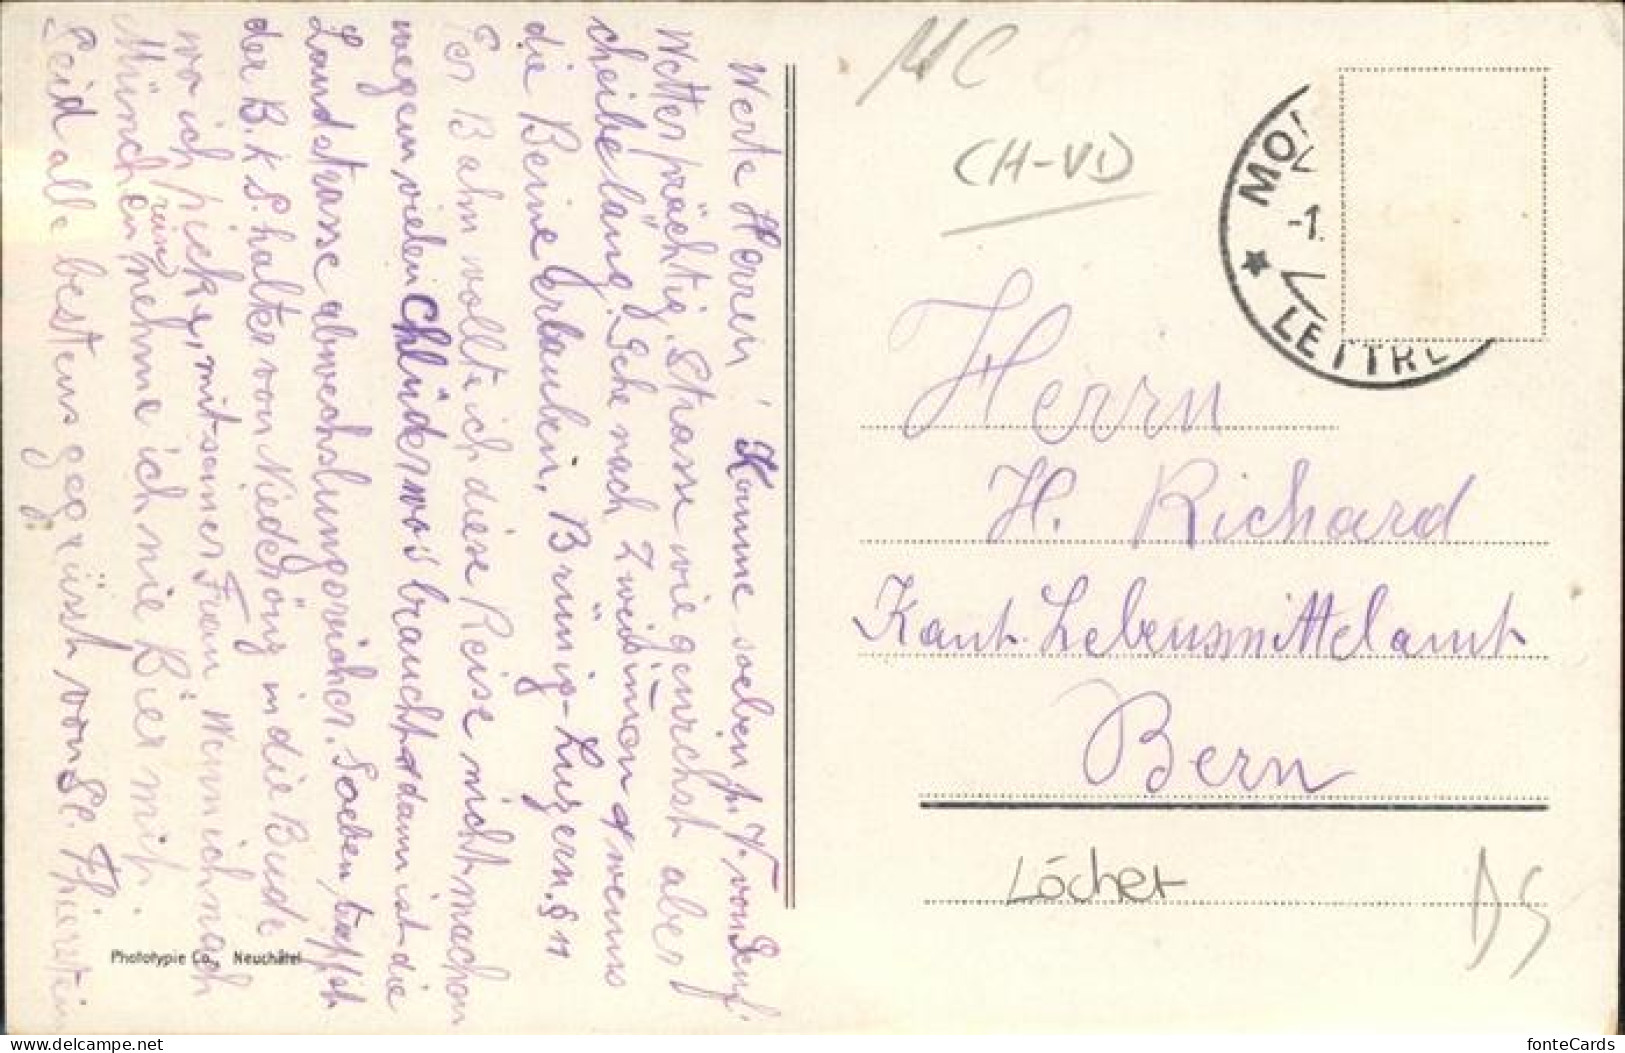 Werte Herren! Komme soeben p. V. von Genf
Wetter prächtig. Strasse wie gewichst aber
cheibe läng. Gehe nach Zweisimmen & wenns
die Beine erlauben, Brünig-Luzern.
Per Bahn wollte ich diese Reise nicht machen
wegen vielen Chlüder wo's braucht & dann ist die
Landstrasse abwechslungsreicher. Soeben trifft
der B.K.S. halter von Niederönz in die Bude
wo ich hicke, mitsamer Frau. Wenn ich nach
München reise, nehme ich nie Bier mit.
Seid alle bestens gegrüsst von
Phototypie Co., Neuchâtel
MC
(CH-VD)
LETTRE
-1.
Herrn
H. Richard
Kant. Lebensmittelamt
Bern
Löcher
DS
fonteCards